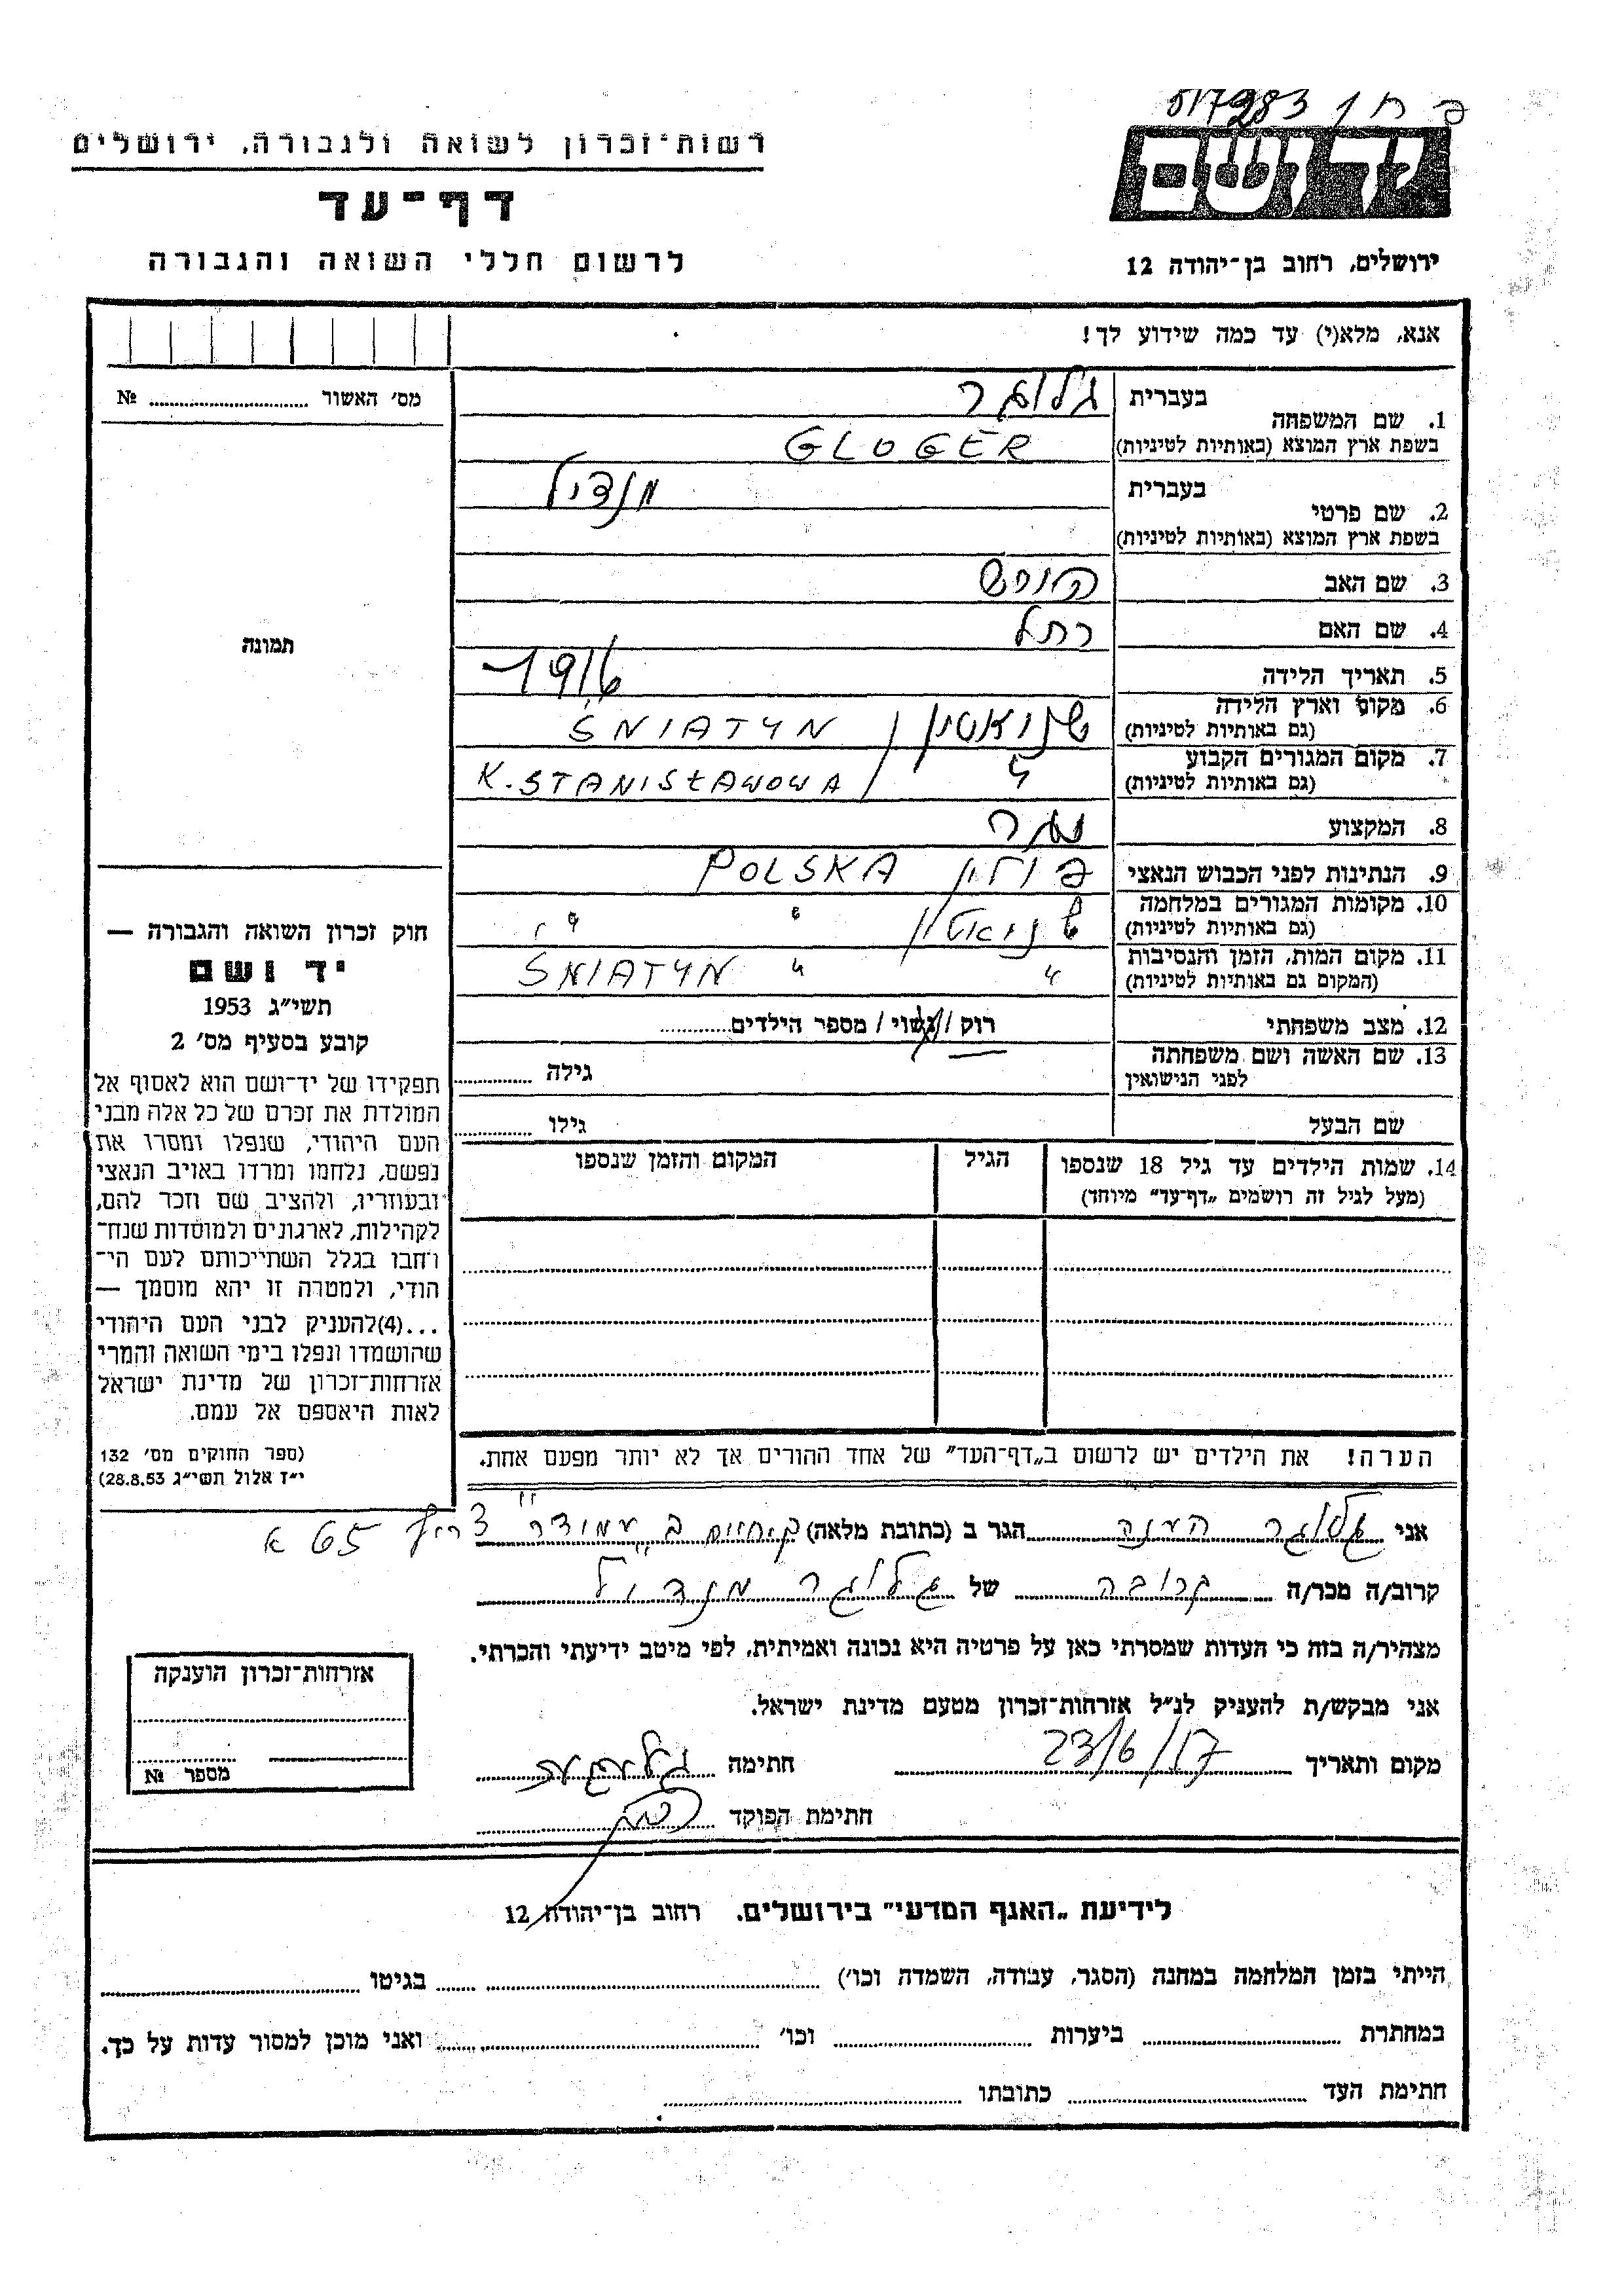 517283
רשות־זכרון לשואה ולגבורה, ירושלים
דף־עד
לרשום חללי השואה והגבורה
יד ושם
ירושלים, רחוב בן־יהודה 12
אנא, מלא(י) עד כמה שידוע לך!
מס׳ האשור № 
תמונה
1. שם המשפחה בעברית גלוגר
בשפת ארץ המוצא (באותיות לטיניות) GLOGER
2. שם פרטי בעברית מנדיל
בשפת ארץ המוצא (באותיות לטיניות)
3. שם האב
4. שם האם רחל
5. תאריך הלידה 1916
6. מקום וארץ הלידה (גם באותיות לטיניות) שניאטין / SNIATYN
7. מקום המגורים הקבוע (גם באותיות לטיניות) " / K. STANISŁAWOWA
8. המקצוע נגר
9. הנתינות לפני הכבוש הנאצי פולין POLSKA
10. מקומות המגורים במלחמה (גם באותיות לטיניות) שניאטין " "
11. מקום המות, הזמן והנסיבות (המקום גם באותיות לטיניות) " " SNIATYN
12. מצב משפחתי רוק / נשוי / מספר הילדים
13. שם האשה ושם משפחתה לפני הנישואין גילה
שם הבעל גילו
14. שמות הילדים עד גיל 18 שנספו הגיל המקום והזמן שנספו
(מעל לגיל זה רושמים „דף־עד” מיוחד)
הערה! את הילדים יש לרשום ב„דף־העד” של אחד ההורים אך לא יותר מפעם אחת.
חוק זכרון השואה והגבורה —
יד ושם
תשי״ג 1953
קובע בסעיף מס׳ 2
תפקידו של יד־ושם הוא לאסוף אל
המולדת את זכרם של כל אלה מבני
העם היהודי, שנפלו ומסרו את
נפשם, נלחמו ומרדו באויב הנאצי
ובעוזריו, ולהציב שם וזכר להם,
לקהילות, לארגונים ולמוסדות שנח־
רחבו בגלל השתייכותם לעם הי־
הודי, ולמטרה זו יהא מוסמך —
...(4)להעניק לבני העם היהודי
שהושמדו ונפלו בימי השואה והמרי
אזרחות־זכרון של מדינת ישראל
לאות היאספם אל עמם.
(ספר החוקים מס׳ 132
י״ז אלול תשי״ג 28.8.53)
אני גלוגר הענה הגר ב (כתובת מלאה) צריף 65 א
קרוב/ה מכר/ה קרובה של גלוגר מנדיל
מצהיר/ה בזה כי העדות שמסרתי כאן על פרטיה היא נכונה ואמיתית, לפי מיטב ידיעתי והכרתי.
אני מבקש/ת להעניק לנ״ל אזרחות־זכרון מטעם מדינת ישראל.
מקום ותאריך 23/6/57 חתימה
חתימת הפוקד
אזרחות־זכרון הוענקה
מספר №
לידיעת „האגף המדעי” בירושלים, רחוב בן־יהודה 12
הייתי בזמן המלחמה במחנה (הסגר, עבודה, השמדה וכו׳) בגיטו
במחתרת ביערות וכו׳ ואני מוכן למסור עדות על כך.
חתימת העד כתובתו